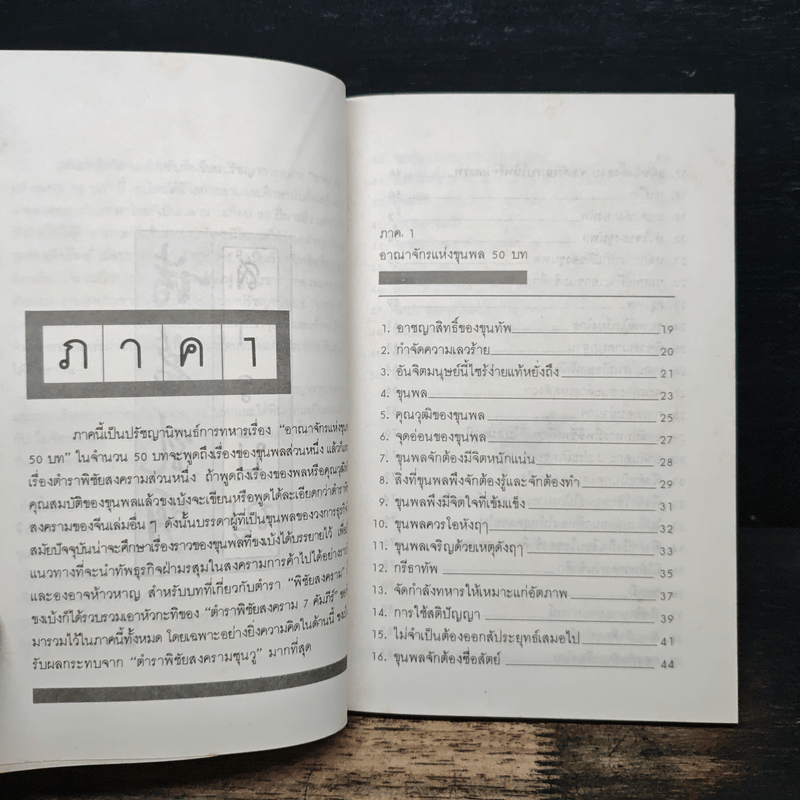 ภาค ๑
ภาคนี้เป็นปรัชญานิพนธ์การทหารเรื่อง “อาณาจักรแห่งขุนพล
50 บท” ในจำนวน 50 บทจะพูดถึงเรื่องของขุนพลส่วนหนึ่ง
เรื่องตำราพิชัยสงครามส่วนหนึ่ง ถ้าพูดถึงเรื่องของพลหรือคุณวุฒิ
คุณสมบัติของขุนพลแล้วขงเบ้งจะเขียนหรือพูดได้ละเอียดกว่าตำรา
สงครามของจีนเล่มอื่น ๆ ดังนั้นบรรดาผู้ที่เป็นขุนพลของวงการธุรกิจ
สมัยปัจจุบันน่าจะศึกษาเรื่องราวของขุนพลที่ขงเบ้งได้บรรยายไว้
แนวทางที่จะนำทัพธุรกิจฝ่ามรสุมในสงครามการค้าไปได้อย่าง
และองอาจห้าวหาญ สำหรับบทที่เกี่ยวกับตำรา “พิชัยสงคราม”
ขงเบ้งก็ได้รวบรวมเอาหัวกะทิของ “ตำราพิชัยสงคราม 7 คัมภีร์”
มารวมไว้ในภาคนี้ทั้งหมด โดยเฉพาะอย่างยิ่งความคิดในด้านนี้
รับผลกระทบจาก “ตำราพิชัยสงครามซุนวู” มากที่สุด
ภาค. 1
อาณาจักรแห่งขุนพล 50 บท
1. อาชญาสิทธิ์ของขุนทัพ 19
2. กำจัดความเลวร้าย 20
3. อันจิตมนุษย์นี้ไซร้ง่ายแท้หยั่งถึง 21
4. ขุนพล 23
5. คุณวุฒิของขุนพล 25
6. จุดอ่อนของขุนพล 27
7. ขุนพลจักต้องมีจิตหนักแน่น 28
8. สิ่งที่ขุนพลพึงจักต้องรู้และจักต้องทำ 29
9. ขุนพลพึงมีจิตใจที่เข้มแข็ง 31
10. ขุนพลควรโอหังฤๅ 32
11. ขุนพลเจริญด้วยเหตุดังฤๅ 33
12. กรีธาทัพ 35
13. จัดกำลังทหารให้เหมาะแก่อัตภาพ 37
14. การใช้สติปัญญา 39
15. ไม่จำเป็นต้องออกสัประยุทธ์เสมอไป 41
16. ขุนพลจักต้องซื่อสัตย์ 44